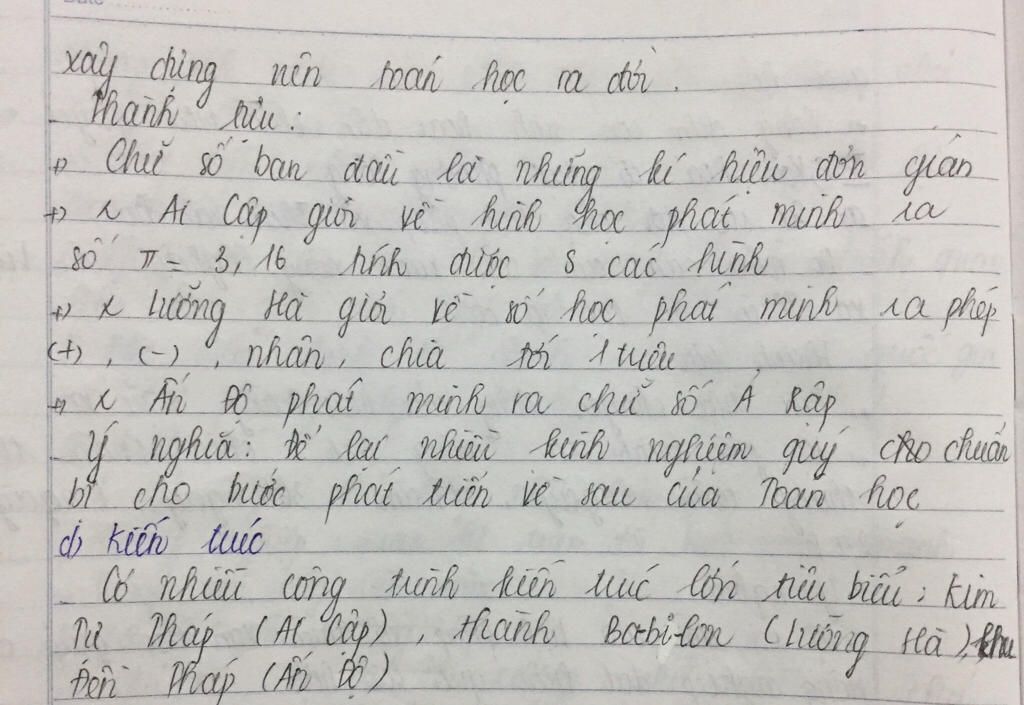 xây dựng nên toán học ra đời.
Thành tựu:
+) Chữ số ban đầu là những kí hiệu đơn giản
+) x Ai Cập giỏi về hình học phát minh ra
số π = 3,16 tính được S các hình
+) x Lưỡng Hà giỏi về số học phát minh ra phép
(+), (-), nhân, chia tới 1 triệu
+) x Ấn Độ phát minh ra chữ số Ả Rập
Ý nghĩa: Để lại nhiều kinh nghiệm quý cho chuẩn
bị cho bước phát triển về sau của Toán học
d) Kiến trúc
Có nhiều công trình kiến trúc lớn tiêu biểu: Kim
Tự Tháp (Ai Cập), thành Ba-bi-lon (Lưỡng Hà), khu
Đền Tháp (Ấn Độ)